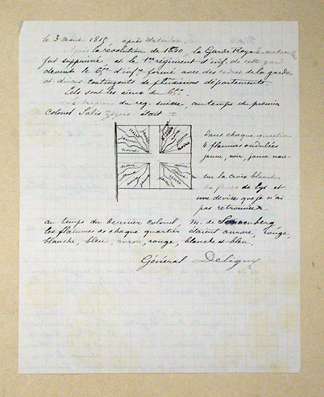 le 3 mars 1815, après Waterloo
la révolution de 1830 la Garde Royale
fut supprimée et le 1er régiment d'inf. de cette garde
devint le 65e d'infie formé avec des cadres de la garde
et divers contingents de plusieurs départements.
Tels sont les aïeux du 65e.
du rég. suisse, au temps du premier
Colonel Salis Zizers était :
Dans chaque quartier
4 flammes ondulées
jaune, noir, jaune noir
sur la croix blanche
de fleurs de lys et
une devise que je n'ai
pas retrouvée
au temps du dernier colonel, M. de Sonnenberg
les flammes de chaque quartier étaient aurore, rouge,
blanche, bleu, aurore, rouge, blanche et bleu.
Général Deligny